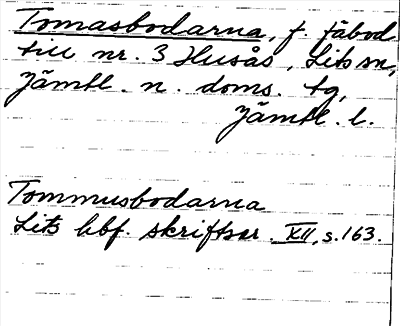 Tomasbodarna, f. fäbod
till nr. 3 Husås, Lits sn,
Jämtl. n. doms. tg,
Jämtl. l.
Tommusbodarna
Lits hbf. skriftser. XII, s. 163.